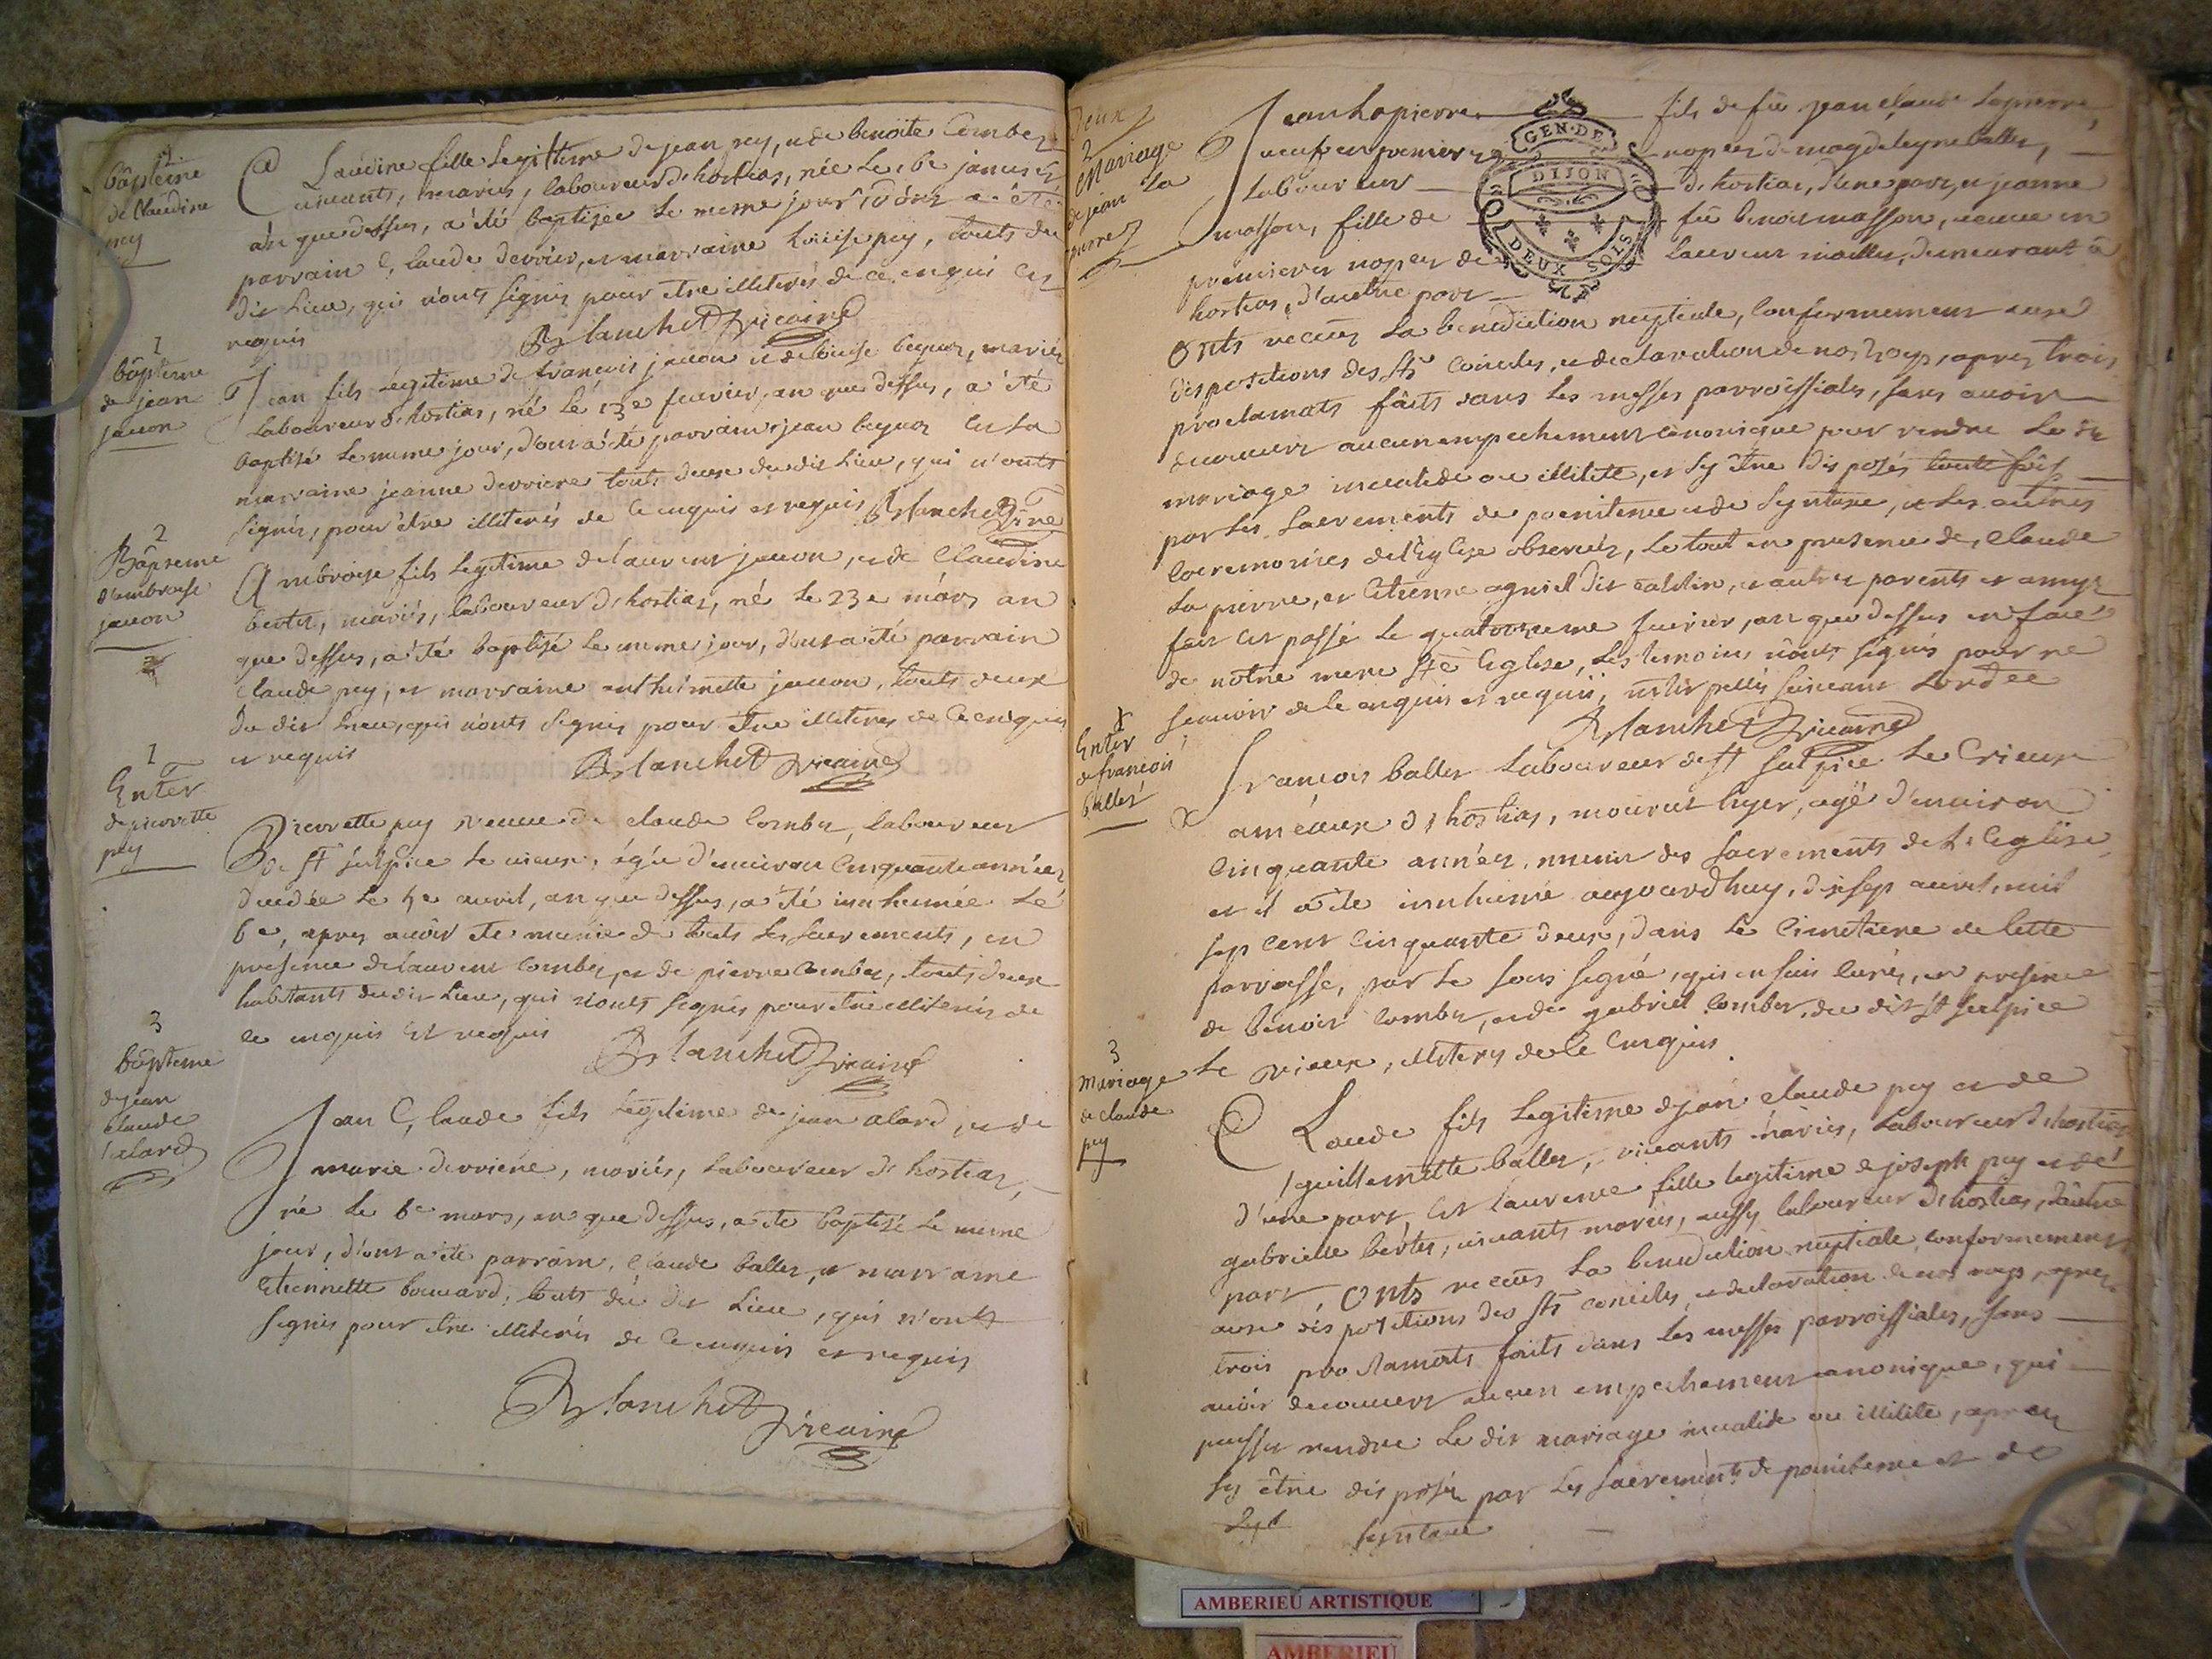 1
bâpteme
de Claudine
pey
Claudine fille Legitteme de jean pey, et de benoite Combes
vivants, mariés, laboureur d'hostias, née le 16e janvier
an que dessus, a'été baptisée le meme jour, d'ont a été
parrain Claude derrier, et marraine Loüise pey, touts du
dit Lieu, qui n'onts signés pour etre illiterés de ce enquis et
requis
Blanchet vicaire
1
bâpteme
de jean
jauon
Jean fils Légitime de francois jauon et de loüise beguet, mariés
Laboureur d'hostias, né Le 13e feuvrier, an que dessus, a'été
baptisé le meme jour, d'ont a'été parrain jean beguet et La
marraine jeanne derriere touts deux du dit Lieu, qui n'onts
signés, pour être illiterés de Ce enquis et requis Blanchet vire
2
Bâpteme
d'ambroise
jauon
Ambroise fils Legitime de laurent jauon, et de Claudine
bertet, mariés, laboureur d'hostias, né Le 23e mârs an
que dessus, a'été baptisé Le meme jour, d'ont a'été parrain
Claude pey, et marraine anthelmette jauon, touts deux
du dit Lieu, qui n'onts signés pour etre illiteres de Ce enquis
et requis
Blanchet vicaire
1
Enter
de pierrette
pey
Pierrette pey veuve de claude Combet, Laboureur
de st sulpice le vieux, agée d'environ Cinquante années
decedée Le 5e avril, an que dessus, a'été inhumée Le
6e, apres avoir ete munie de touts Les sacrements, en
presence de laurent Combet, et de pierre Combet, touts deux
habitants du dit Lieu, qui n'onts signés pour etre illiterés de
ce enquis et requis
Blanchet vicaire
3
bâpteme
de jean
Claude
alard
Jean Claude fils Legitime de jean alard, et de
marie derriére, mariés, Laboureur d'hostias,
né Le 6e mars, an que dessus, a été baptisé Le meme
jour, d'ont a'été parrain, Claude ballet, et marraine
Etiennette bouvard, touts du dit Lieu, qui n'onts
signés pour etre illiterés de Ce enquis et requis
Blanchet vicaire
Deux
2
Mariage
de jean La
pierre
Jean Lapierre fils de fû jean Claude Lapierre,
veuf en premieres nopces de magdeleyne ballet,
Laboureur d'hostias, d'une part, et jeanne
masson, fille de fû benoit masson, veuve en
premieres nopces de Laurent maillet, demeurant â
hostias, d'autre part
Onts recûes La benediction nuptiale, Conformement aux
dispositions des sts Conciles, et declaration de nos roys, apres trois
proclamats fâits dans Les messes parroissiales, sans avoir
decouvert aucun empechement Canonique pour rendre Le dit
mariage invalide ou illicite, et s'y être disposés toute fois
par Les sacrements de poenitence et de Syntaxe, et Les autres
Coeremonies de L'Eglise observés, Le tout en presence de, Claude
La pierre, et Etienne agniel dit Catelin, et autres parents et amys
fait et passé le quatorzieme feuvrier, an que dessus en face
de nôtre mere Ste Eglise, Les temoins n'onts signés pour ne
scavoir de le enquis et requis, interpellés suivant L'ordce
Blanchet vicaire
1
Enter
de francois
ballet
Francois ballet Laboureur de st sulpice Le Vieux
amêaux d'hostias, mourut hyer, agé d'environ
Cinquante années, munir des sacrements de L'Eglise
et il a été innhumé aujourd'huy, dixsept avril, mil
sep cent Cinquante deux, dans Le Cimetiere de Cette
parroisse, par Le sous signé, qui en suis Curé, en presence
de benoit Combet, et de gabriel Combet, du dit St sulpice
Le Vieux, illiterés de Ce Enquis
3
Mariage
de claude
pey
Claude fils Legitime de jean claude pey et de
guillemette ballet, vivants mariés, Laboureur d'hostias
d'une part, et laurence fille legitime de joseph pey et de
gabrielle bertet, vivants mariés, aussy laboureur d'hostias, d'autre
part, Onts recûes La benediction nuptiale Conformement
aux dispositions des sts conciles, et declaration de nos roys, apres
trois proclamats faits dans Les messes parroissiales, sans
avoir decouvert aucun empechement canonique, qui
puisse rendre Le dit mariage invalide ou illicite, apres
s'y être disposés par Les sacrements de poenitence et de
Syntaxe
GEN. DE
DIJON
DEUX SOLS
AMBERIEU ARTISTIQUE
AMBERIEU